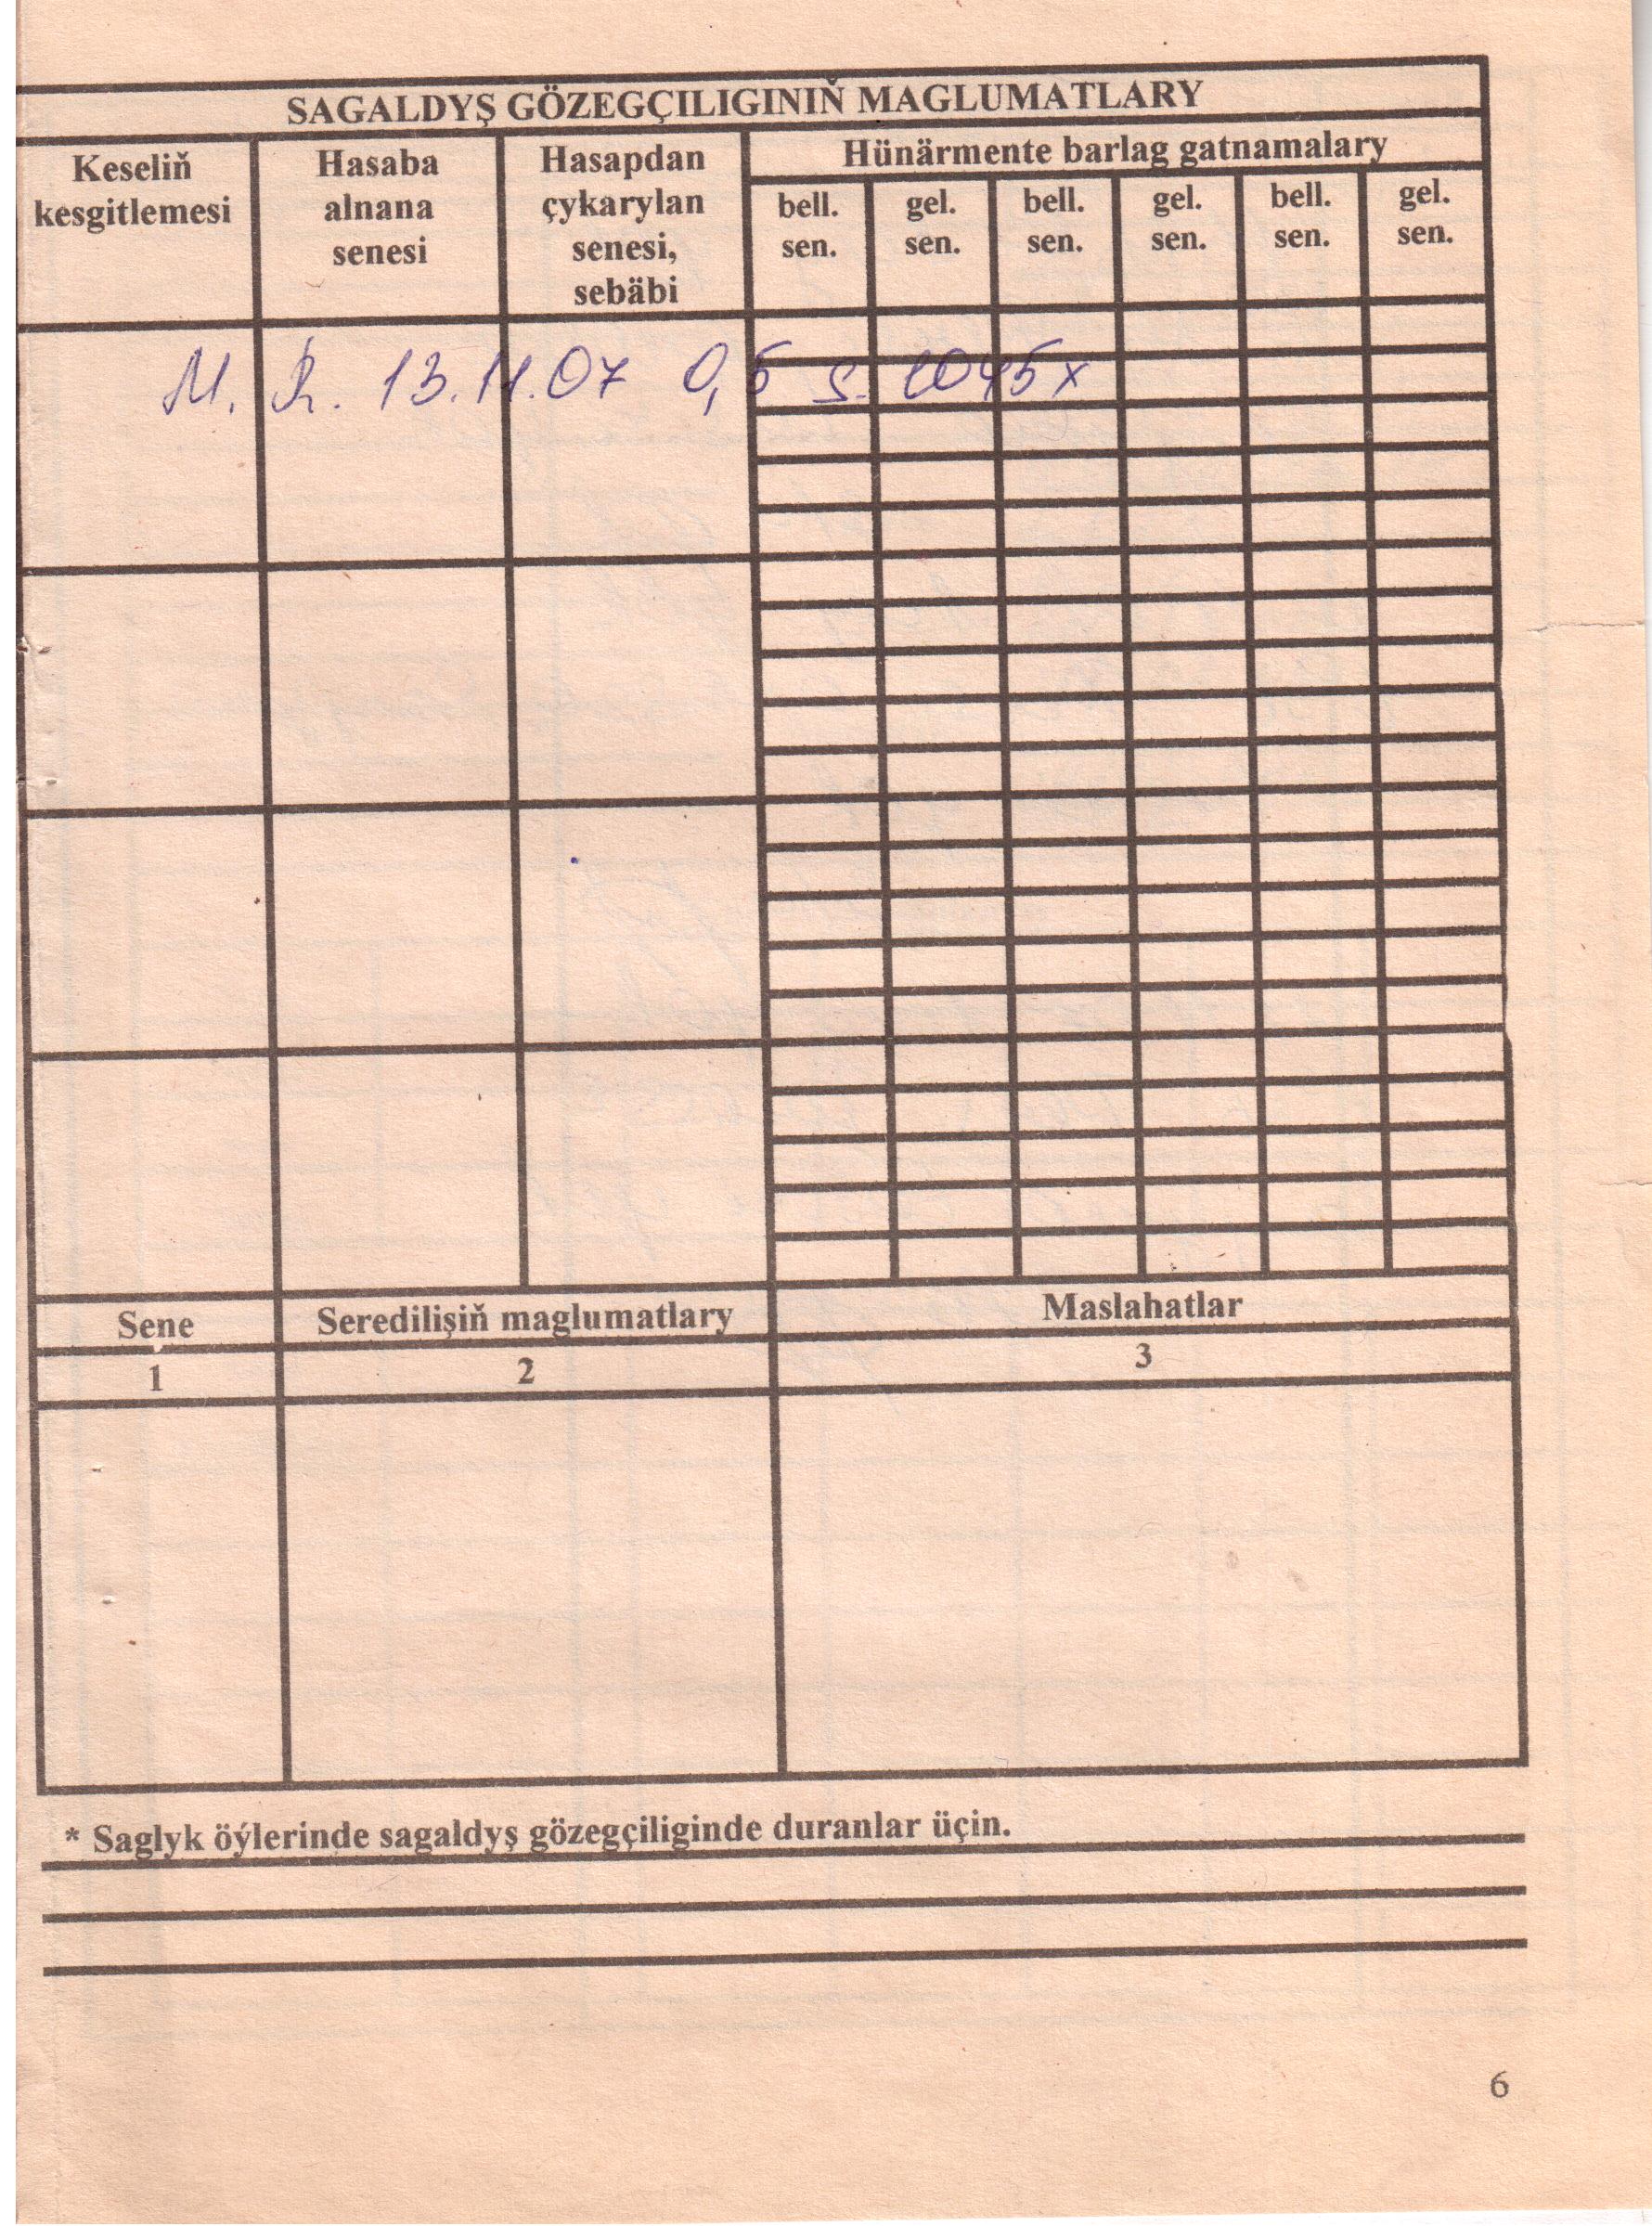 SAGALDYŞ GÖZEGÇILIGINIŇ MAGLUMATLARY
Keseliň kesgitlemesi
Hasaba alnana senesi
Hasapdan çykarylan senesi, sebäbi
Hünärmente barlag gatnamalary
bell. sen.
gel. sen.
bell. sen.
gel. sen.
bell. sen.
gel. sen.
M. R. 13.11.07 0,5 s. 1045x
Sene
Seredilişiň maglumatlary
Maslahatlar
1
2
3
* Saglyk öýlerinde sagaldyş gözegçiliginde duranlar üçin.
6